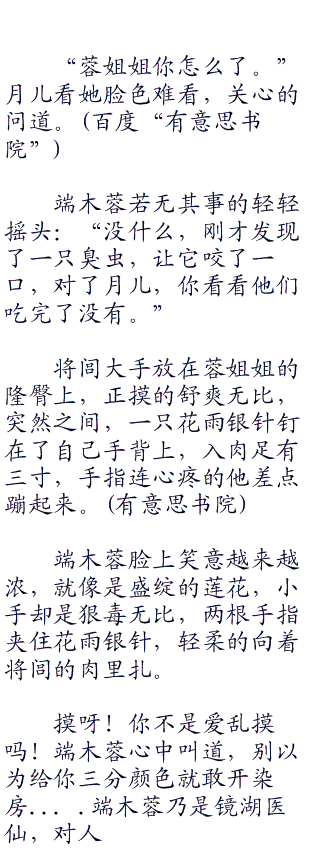 “蓉姐姐你怎么了。”
月儿看她脸色难看，关心的
问道。(百度“有意思书
院”)
端木蓉若无其事的轻轻
摇头：“没什么，刚才发现
了一只臭虫，让它咬了一
口，对了月儿，你看看他们
吃完了没有。”
将闾大手放在蓉姐姐的
隆臀上，正摸的舒爽无比，
突然之间，一只花雨银针钉
在了自己手背上，入肉足有
三寸，手指连心疼的他差点
蹦起来。(有意思书院)
端木蓉脸上笑意越来越
浓，就像是盛绽的莲花，小
手却是狠毒无比，两根手指
夹住花雨银针，轻柔的向着
将闾的肉里扎。
摸呀！你不是爱乱摸
吗！端木蓉心中叫道，别以
为给你三分颜色就敢开染
房... .端木蓉乃是镜湖医
仙，对人